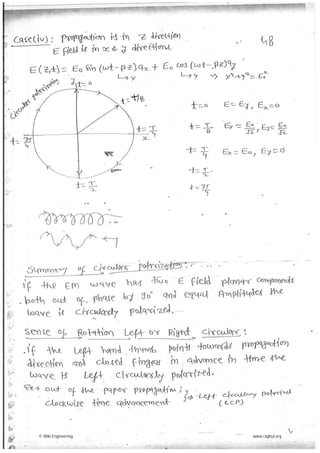 Case(iv): Propagation is in Z direction
48
E field is in x & y directions.
E(z,t) = E₀ sin(ωt-βz)ax + E₀ cos(ωt-βz)ay
↳x ↳y ⇒ x²+y²=E₀²
Circular polarisation
y t=0
t=T/8
t=T/4
x
t=3T/4
t=T/2
t=0 E=Ey, Ex=0
t=T/8 Ey=E₀/√2, Ex=E₀/√2
t=T/4 Ex=E₀, Ey=0
t=T/2
t=3T/4
Summary of circular polarization:
if the EM wave has two E field planar components
both out of phase by 90° and equal Amplitudes the
wave is circularly polarized.
Sense of Rotation Left or Right circular:
if the Left hand thumb points towards propagation
direction and closed fingers in advance in time the
wave is Left circularly polarized.
Ex: out of the paper propagation ;
clockwise time advancement
Left circularly polarized
(LCP)
© Wiki Engineering
www.raghul.org